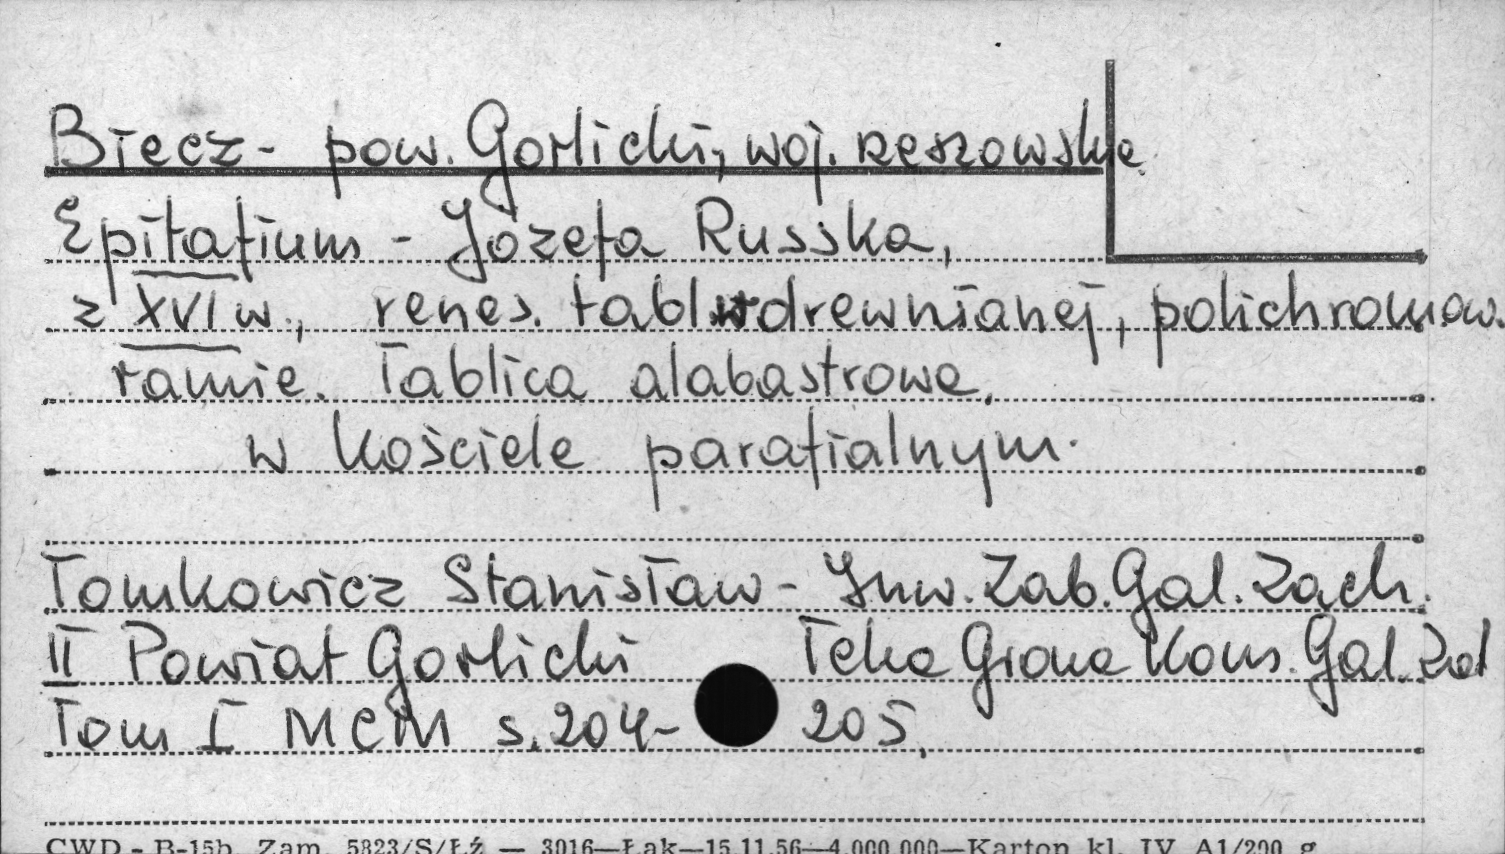 Biecz - pow. Gorlicki, woj. rzeszowskie
Epitafium - Józefa Russka,
z XVI w., renes. tabl. w drewnianej, polichromow.
ramie. Tablica alabastrowa,
w kościele parafialnym.
Tomkowicz Stanisław - Inw. Zab. Gal. Zach.
II Powiat Gorlicki Teka Grona Kons. Gal. Zach
Tom I MCM s. 204 - 205,
CWD - B-15b. Zam. 5823/S/ŁŹ — 3016—Łąk—15.11.56—4.000.000—Karton kl. IV A1/200 g